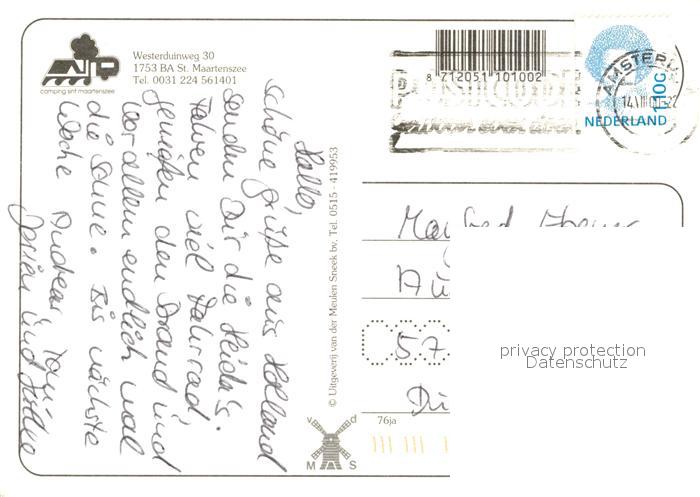 Westerduinweg 30
1753 BA St. Maartenszee
Tel. 0031 224 561401
camping sint maartenszee
8 712051 101002
AMSTERD
14.VII
NEDERLAND
110c
Hallo,
schöne Grüße aus Holland
senden Dir die Heidn's.
Fahren viel Fahrrad,
genießen den Strand und
vor allem endlich mal
die Sonne. Bis nächste
Woche Andreas,
und
© Uitgeverij van der Meulen Sneek bv, Tel. 0515 - 419953
Manfred
57
76ja
v d
M S
privacy protection
Datenschutz